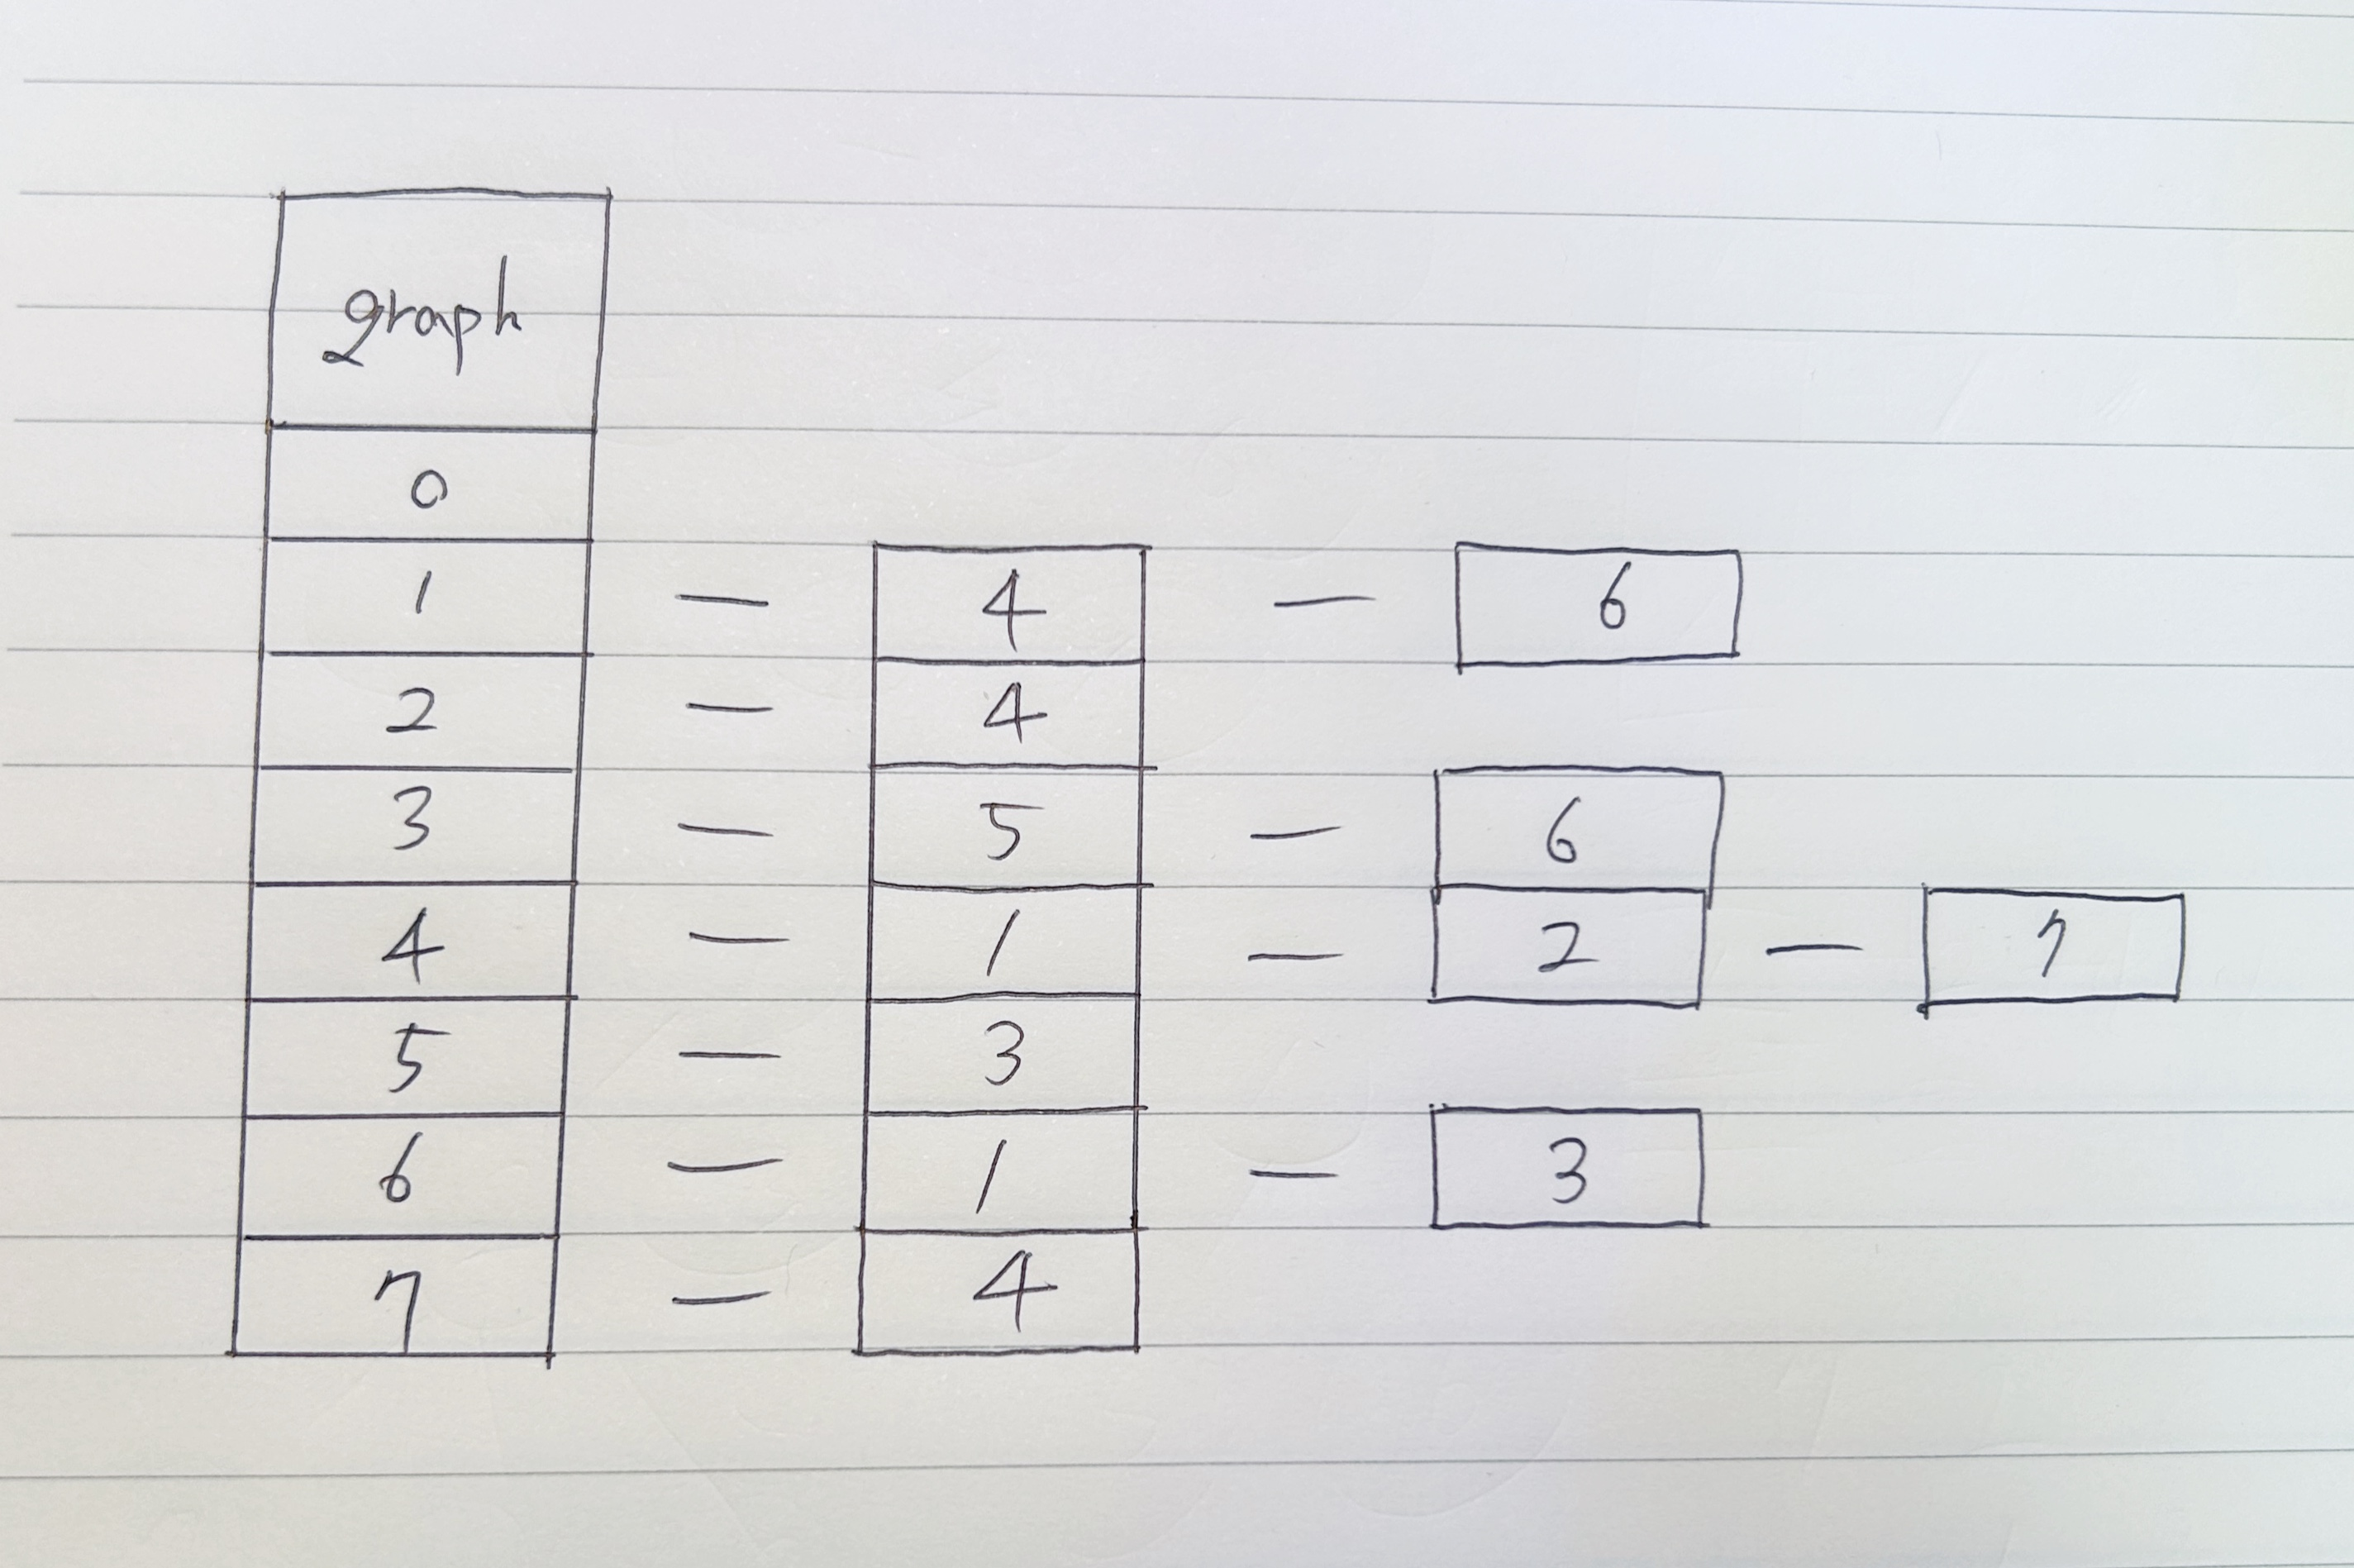 graph
0
1 — 4 — 6
2 — 4
3 — 5 — 6
4 — 1 — 2 — 7
5 — 3
6 — 1 — 3
7 — 4